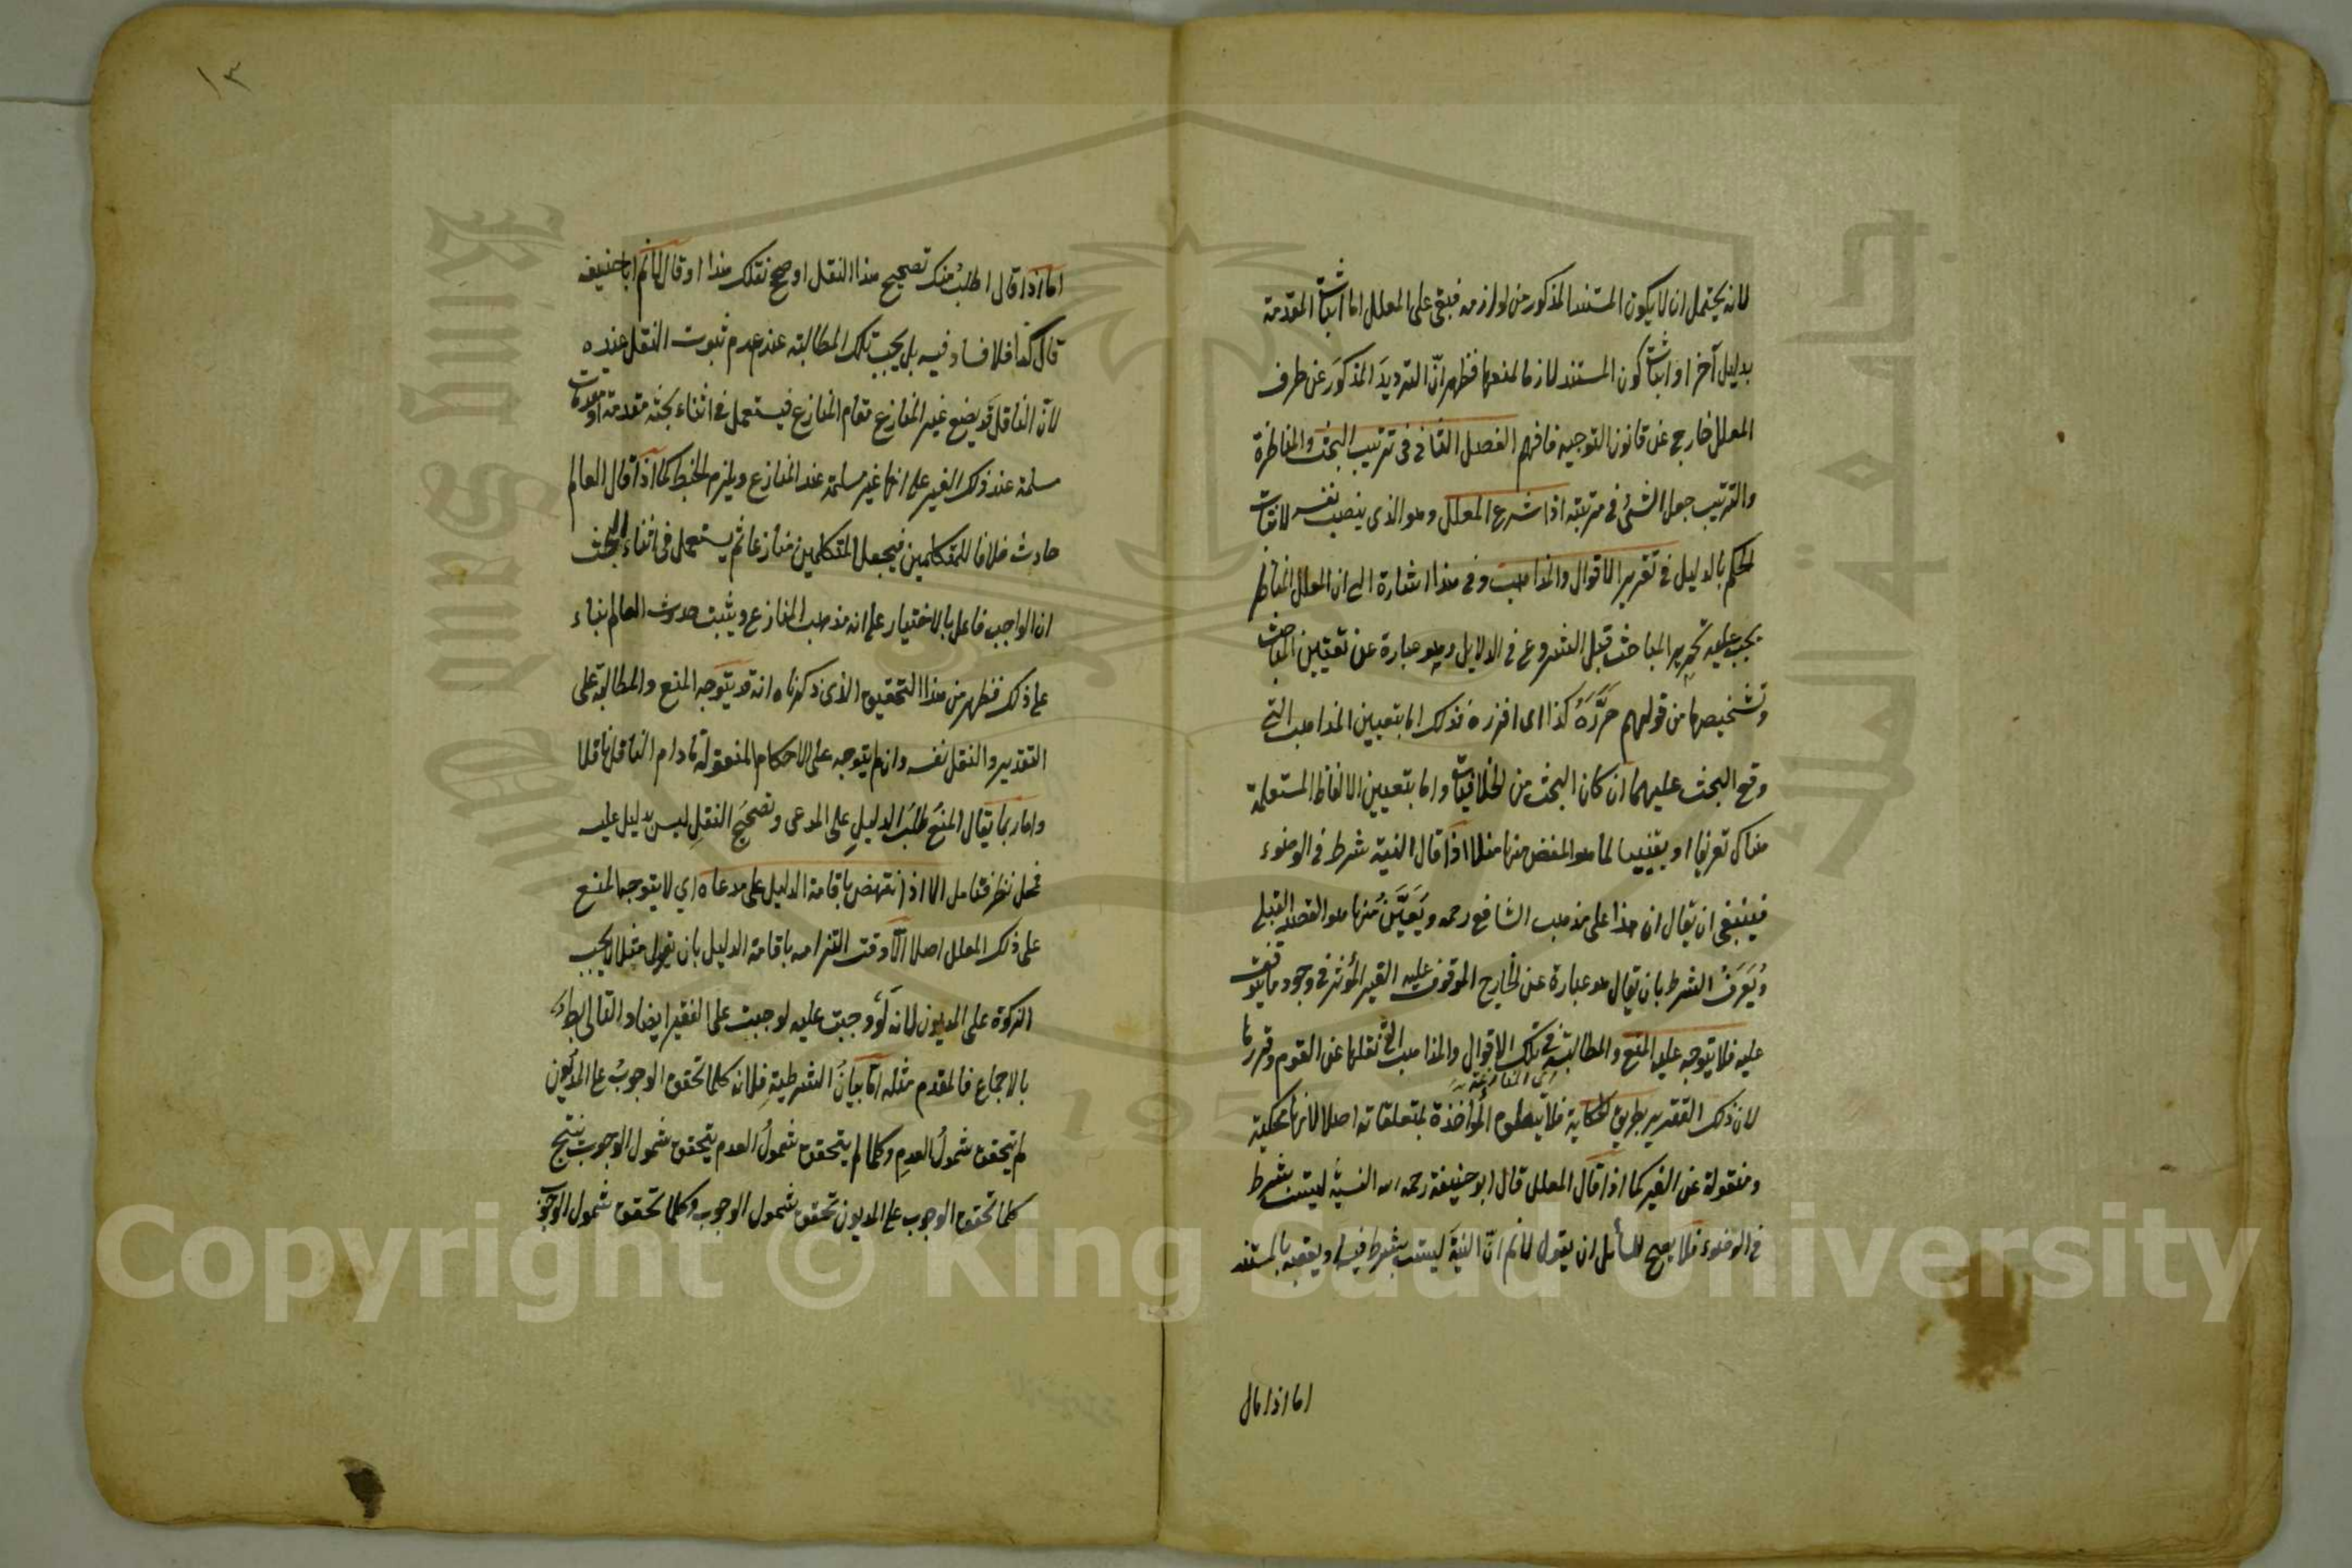 لانه يحتمل ان لا يكون المستند المذكور من لوازمه فبقى على المعلل اما اثبات المقدمة
بدليل آخر او اثبات كون المستند لازما لمنعها فظهر انّ الترديدَ المذكورَ عن طرف
المعلل خارج عن قانون التوجيه فافهم الفصل الثانى فى ترتيب البحث والمناظرة
والترتيب جعل الشئ فى مرتبته اذا شرع المعلل وهو الذى ينصب نفسه لاثبات
الحكم بالدليل فى تقرير الاقوال والمذاهب وفى هذا اشارة الى ان المعلل المناظر
يجب عليه تحرير المباحث قبل الشروع فى الدلايل وهو عبارة عن تعيين المباحث
وتشخيصها من قولهم حَرَّرَهُ كذا اى افرزه فذلك اما بتعيين المذاهب التى
وقع البحث عليهما ان كان البحث من الخلافيات واما بتعيين الالفاظ المستعملة
هناك تعريفا او تعيينا لما هو المغض منها مثلا اذا قال النية شرط فى الوضوء
فينبغى ان يقال ان هذا على مذهب الشافع رحمه ويُعَيَّنُ منها هو القصد القبلى
ويُعَرَفُ الشرط بان يقال هو عبارة عن الخارج الموقوف عليه الغير المؤثر فى وجود ما يتوقف
عليه فلا يتوجه عليه المنع والمطالبة فى تلك الاقوال والمذاهب التى نقلها عن القوم وقررها
لان ذلك التقرير بطريق الحكاية فلا يتعلق المؤاخذة بمتعلقاته اصلا لانها محكية
ومنقولة عن الغير كما اذا قال المعلل قال ابو حنيفة رحمه الله النية ليست بشرط
فى الوضوء فلا يصح للسائل ان يقول لا نم انّ النيةَ ليست بشرط فيه ويعقبه بالمستند
اما اذا قال
١٣
اما اذا قال اطلبُ منك تصحيح هذا النقل او صحح نقلك هذا او قال لا نم ابا حنيفه
قال كذا فلا فساد فيه بل يجب تلك المطالبة عند عدم ثبوت النقل عنده
لانّ الناقل قد يضع غير المنازع مقام المنازع فيستعمل فى اثناء بحثه مقدمة او مقدمات
مسلمة عند ذلك الغير على انها غير مسلمة عند المنازع ويلزم الخبط كما اذا قال العالم
حادث خلافا للمتكلمين فيجعل المتكلمين منازعا ثم يستعمل فى اثناء البحث
ان الواجب فاعل بالاختيار على انه مذهب المنازع ويثبت حدوث العالم بناء
على ذلك فظهر من هذا التحقيق الذى ذكرناه انه قد يتوجه المنع والمطالبة على
التقدير والنقل نفسه وان لم يتوجه على الاحكام المنقولة ما دام الناقل ناقلا
واما ربما يقال المنع طلبُ الدليلِ على المدعى وتصحيح النقلِ ليس بدليل عليه
فمحل نظر فتامل الا اذا انتهض باقامة الدليل على مدعاه اي لا يتوجه المنع
على ذلك المعلل اصلا الّا وقت التزامه باقامة الدليل بان يقول مثلا لا يجب
الزكوة على المديون لانه لو وجبت عليه لوجبت على الفقير ايضا والتالى باطل
بالاجماع فالمقدم مثله امّا بيانُ الشرطيةِ فلانه كلما تحقق الوجوبُ على المديون
لم يتحقق شمولُ العدمِ وكلما لم يتحقق شمولُ العدم يتحقق شمول الوجوب ينتج
كلما تحقق الوجوب على المديون تحقق شمول الوجوب وكلما تحقق شمول الوجوب
Copyright © King Saud University